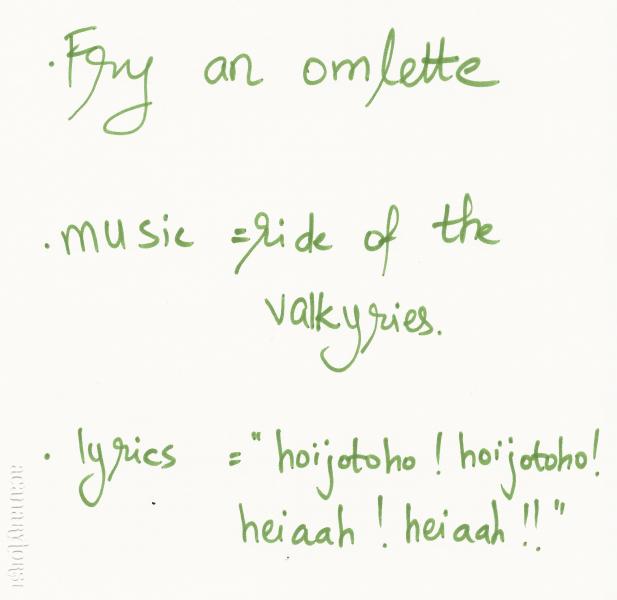 · Fry an omlette
· music = ride of the
valkyries.
· lyrics = " hoijotoho ! hoijotoho!
heiaah ! heiaah !! "